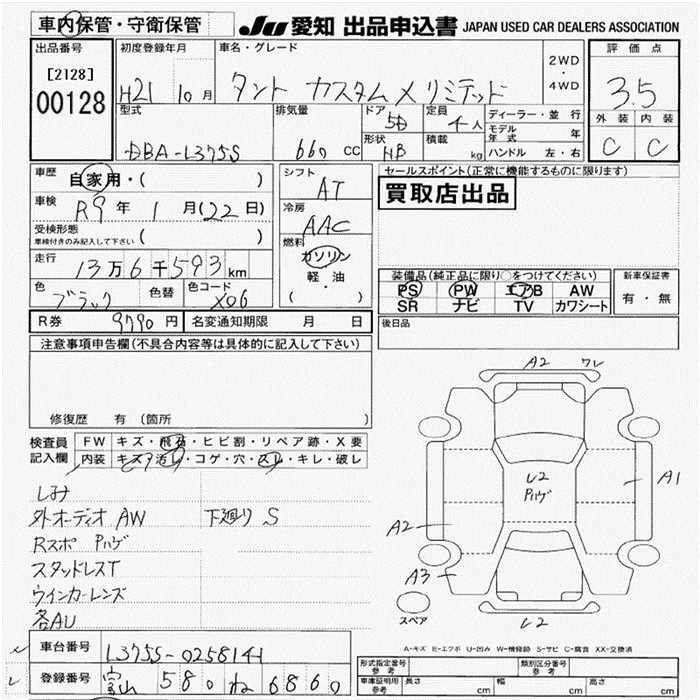 車内保管・守衛保管
JU 愛知 出品申込書 JAPAN USED CAR DEALERS ASSOCIATION
出品番号 初度登録年月 車名・グレード 評価点
[2128] 00128
H21 10月 タント カスタム X リミテッド 2WD・4WD 3.5
型式 排気量 ドア 定員 ディーラー・並行 外装 内装
DBA-L375S 660 CC 5D 4人 モデル年式 年 C C
形状 HB 積載 kg ハンドル 左・右
車歴 自家用・( ) シフト AT セールスポイント(正常に機能するものに限ります)
車検 R9年 1月(22日) 冷房 AAC 買取店出品
受検形態 車検付きのみ記入して下さい ( ) 燃料 ガソリン 軽・油 ( ・ )
走行 13万6千593km 装備品(純正品に限り○をつけてください) 新車保証書
色 ブラック 色替 色コード X06 PS PW エアB AW 有・無
SR ナビ TV カワシート
R券 9790円 名変通知期限 月 日 後日品
注意事項申告欄(不具合内容等は具体的に記入して下さい)
修復歴 有 (箇所
検査員記入欄 FW キズ・飛石・ヒビ割・リペア跡・X要
内装 キズ・汚レ・コゲ・穴・スレ・キレ・破レ
しみ
外オーディオ AW 下廻り S
Rスポ Pハゲ
スタッドレスT
ウインカーレンズ
各AU
A2 ワレ
レ2
Pハゲ
A1
A2
A3
スペア レ2
A-キズ E-エクボ U-凹み W-補修跡 S-サビ C-腐食 XX-交換済
車台番号 L375S-0258141
登録番号 富山 580 ね 6860
形式指定番号 参考 類別区分番号 参考
車庫証明用 参考 長さ cm 幅 cm 高さ cm